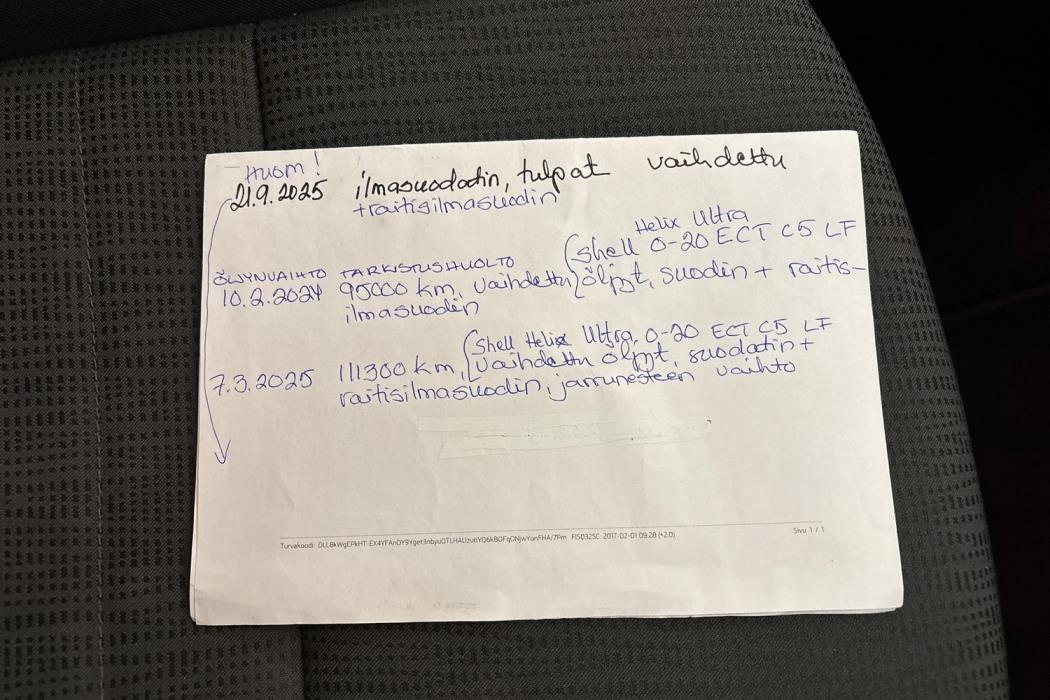 Huom!
21.9.2025 ilmasuodatin, tulpat vaihdettu
+raitisilmasuodin
Helix Ultra
(Shell 0-20 ECT C5 LF
ÖLJYNVAIHTO TARKISTUSHUOLTO
10.2.2024 95000 km, vaihdettu öljyt, suodin + raitis-
ilmasuodin
(Shell Helix Ultra, 0-20 ECT C5 LF
7.3.2025 111300 km, vaihdettu öljyt, suodatin +
raitisilmasuodin, jarrunesteen vaihto
Sivu 1 / 1
Turvakoodi: FI5032SC 2017-02-01 09:28 (+2.0)